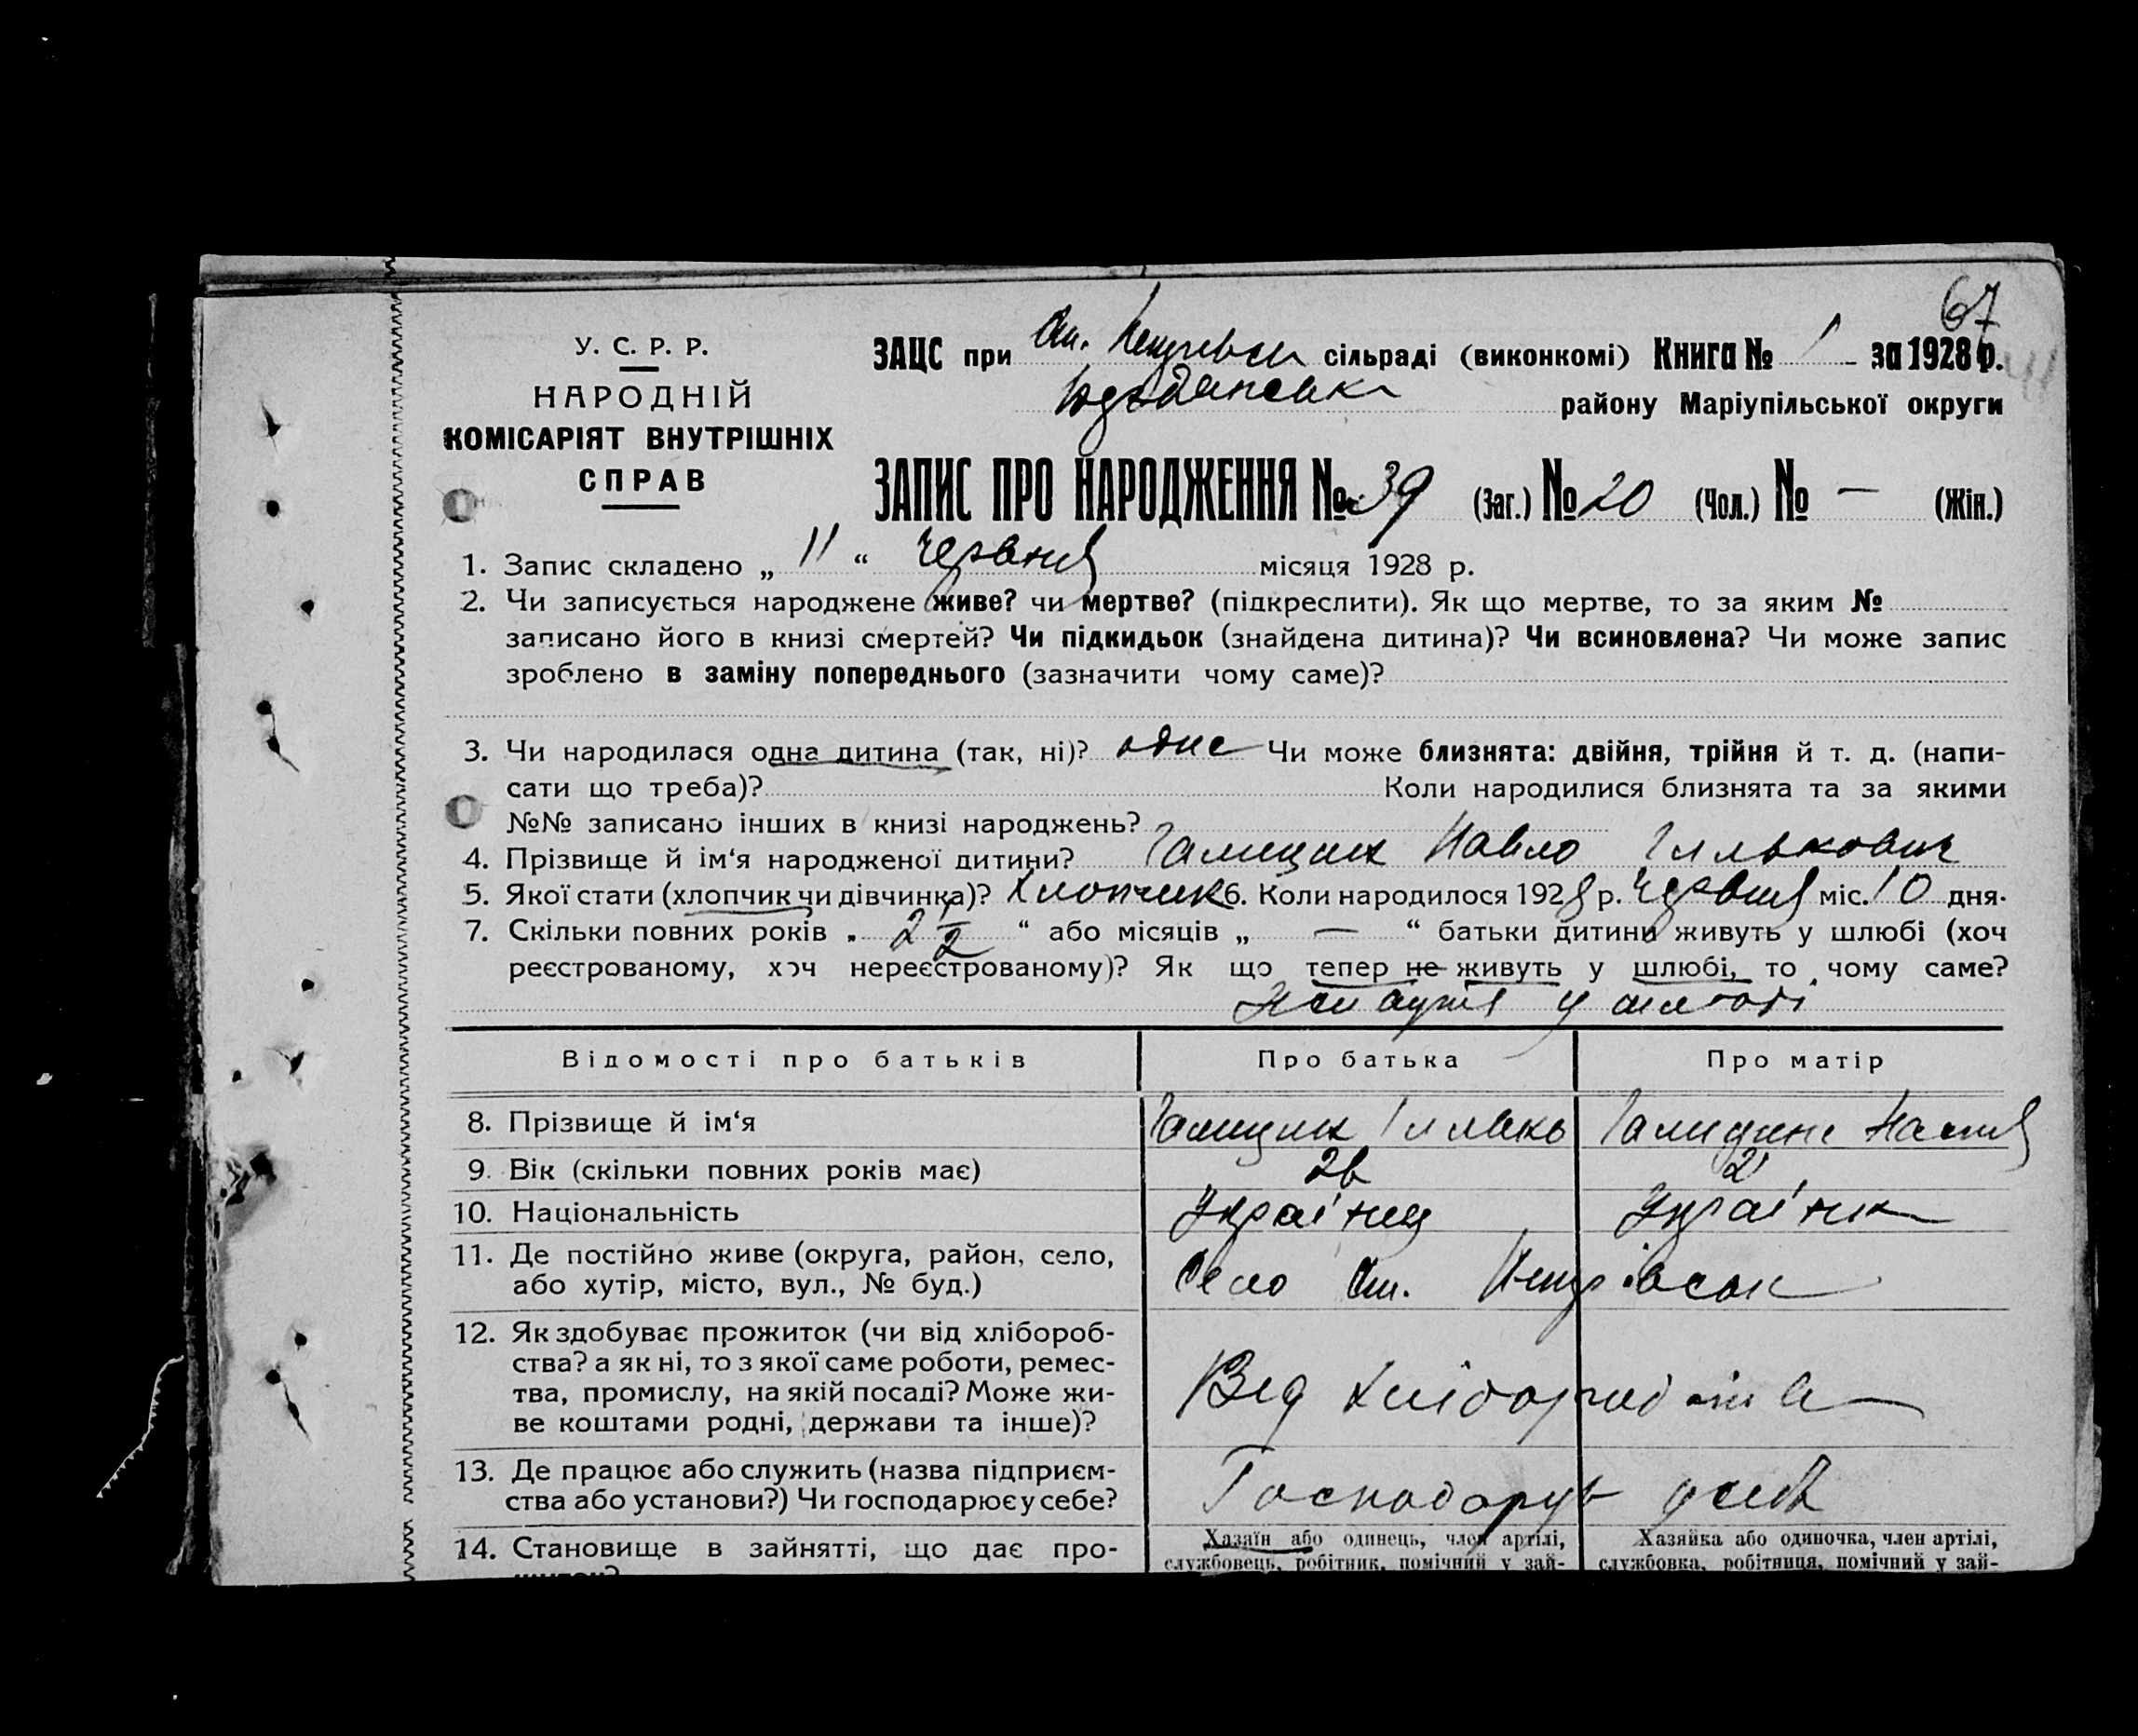 67
У. С. Р. Р.
НАРОДНІЙ
КОМІСАРІЯТ ВНУТРІШНІХ
СПРАВ
ЗАЦС при Ст. сільраді (виконкомі) Книга № 1 за 1928 р.
району Маріупільської округи
ЗАПИС ПРО НАРОДЖЕННЯ № 39 (Заг.) № 20 (Чол.) № — (Жін.)
1. Запис складено „ 11 “ Червня місяця 1928 р.
2. Чи записується народжене живе? чи мертве? (підкреслити). Як що мертве, то за яким №
записано його в книзі смертей? Чи підкидьок (знайдена дитина)? Чи всиновлена? Чи може запис
зроблено в заміну попереднього (зазначити чому саме)?
3. Чи народилася одна дитина (так, ні)? одне Чи може близнята: двійня, трійня й т. д. (напи-
сати що треба)? Коли народилися близнята та за якими
№№ записано інших в книзі народжень?
4. Прізвище й ім‘я народженої дитини? Галицик Павло Ількович
5. Якої стати (хлопчик чи дівчинка)? Хлопчик 6. Коли народилося 1928 р. Червня міс. 10 дня.
7. Скільки повних років „ 2 1/2 “ або місяців „ — “ батьки дитини живуть у шлюбі (хоч
реєстрованому, хоч нереєстрованому)? Як що тепер не живуть у шлюбі, то чому саме?
у шлюбі
Відомості про батьків Про батька Про матір
8. Прізвище й ім‘я Галицик Ілько
9. Вік (скільки повних років має) 26 21
10. Національність Українец Українка
11. Де постійно живе (округа, район, село,
або хутір, місто, вул., № буд.) Село Ст.
12. Як здобуває прожиток (чи від хлібороб-
ства? а як ні, то з якої саме роботи, ремес-
тва, промислу, на якій посаді? Може жи-
ве коштами родні, держави та інше)? Від хліборобства
13. Де працює або служить (назва підприєм-
ства або установи?) Чи господарює у себе? Господарує у себе
14. Становище в зайнятті, що дає про-
Хазяїн або одинець, член артілі,
службовець, робітник, помічний у зай-
Хазяйка або одиночка, член артілі,
службовка, робітниця, помічний у зай-